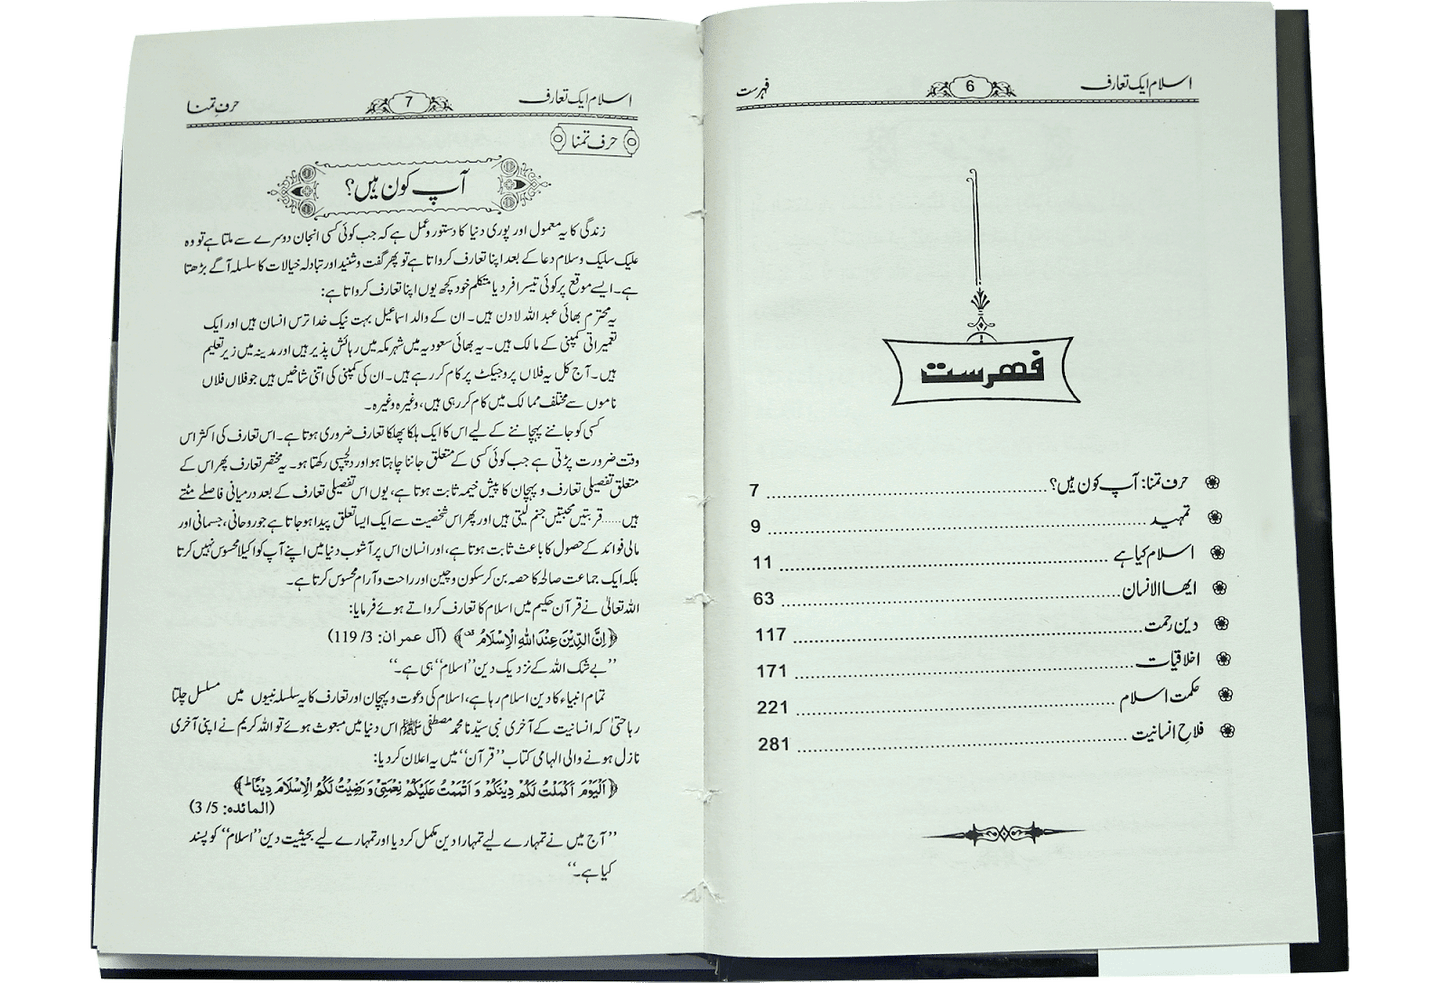 اسلام ایک تعارف 6 فہرست
فہرست
حرف تمنا: آپ کون ہیں؟ 7
تمہید 9
اسلام کیا ہے 11
ایھا الانسان 63
دین رحمت 117
اخلاقیات 171
حکمت اسلام 221
فلاحِ انسانیت 281
اسلام ایک تعارف 7 حرفِ تمنا
حرف تمنا
آپ کون ہیں؟
زندگی کا یہ معمول اور پوری دنیا کا دستور و عمل ہے کہ جب کوئی کسی انجان دوسرے سے ملتا ہے تو وہ
علیک سلیک و سلام دعا کے بعد اپنا تعارف کرواتا ہے تو پھر گفت و شنید اور تبادلہ خیالات کا سلسلہ آگے بڑھتا
ہے۔ ایسے موقع پر کوئی تیسرا فرد یا متکلم خود کچھ یوں اپنا تعارف کرواتا ہے:
یہ محترم بھائی عبد اللہ لادن ہیں۔ ان کے والد اسماعیل بہت نیک خدا ترس انسان ہیں اور ایک
تعمیراتی کمپنی کے مالک ہیں۔ یہ بھائی سعودیہ میں شہر مکہ میں رہائش پذیر ہیں اور مدینہ میں زیر تعلیم
ہیں۔ آج کل یہ فلاں پروجیکٹ پر کام کر رہے ہیں۔ ان کی کمپنی کی اتنی شاخیں ہیں جو فلاں فلاں
ناموں سے مختلف ممالک میں کام کر رہی ہیں، وغیرہ وغیرہ۔
کسی کو جاننے پہچاننے کے لیے اس کا ایک ہلکا پھلکا تعارف ضروری ہوتا ہے۔ اس تعارف کی اکثر اس
وقت ضرورت پڑتی ہے جب کوئی کسی کے متعلق جاننا چاہتا ہو اور دلچسپی رکھتا ہو۔ یہ مختصر تعارف پھر اس کے
متعلق تفصیلی تعارف و پہچان کا پیش خیمہ ثابت ہوتا ہے، یوں اس تفصیلی تعارف کے بعد درمیانی فاصلے مٹتے
ہیں...... قربتیں محبتیں جنم لیتی ہیں اور پھر اس شخصیت سے ایک ایسا تعلق پیدا ہو جاتا ہے جو روحانی، جسمانی اور
مالی فوائد کے حصول کا باعث ثابت ہوتا ہے، اور انسان اس پر آشوب دنیا میں اپنے آپ کو اکیلا محسوس نہیں کرتا
بلکہ ایک جماعت صالحہ کا حصہ بن کر سکون و چین اور راحت و آرام محسوس کرتا ہے۔
اللہ تعالیٰ نے قرآن حکیم میں اسلام کا تعارف کرواتے ہوئے فرمایا:
﴿اِنَّ الدِّیْنَ عِنْدَ اللّٰهِ الْاِسْلَامُ﴾ (آل عمران: 119/3)
’’بے شک اللہ کے نزدیک دین ’’اسلام‘‘ ہی ہے۔‘‘
تمام انبیاء کا دین اسلام رہا ہے، اسلام کی دعوت و پہچان اور تعارف کا یہ سلسلہ نبیوں میں مسلسل چلتا
رہا حتیٰ کہ انسانیت کے آخری نبی سیّدنا محمد مصطفی ﷺ اس دنیا میں مبعوث ہوئے تو اللہ کریم نے اپنی آخری
نازل ہونے والی الہامی کتاب ’’قرآن‘‘ میں یہ اعلان کر دیا:
﴿اَلْیَوْمَ اَکْمَلْتُ لَکُمْ دِیْنَکُمْ وَ اَتْمَمْتُ عَلَیْکُمْ نِعْمَتِیْ وَ رَضِیْتُ لَکُمُ الْاِسْلَامَ دِیْنًا﴾
(المائدہ: 3/5)
’’آج میں نے تمہارے لیے تمہارا دین مکمل کر دیا اور تمہارے لیے بحیثیت دین ’’اسلام‘‘ کو پسند
کیا ہے۔‘‘